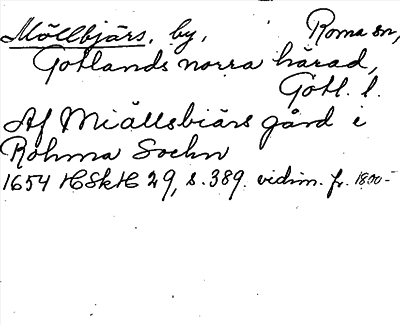 Möllbjärs, by, Roma sn,
Gotlands norra härad,
Gotl. l.
Af Miällsbiärs gård i
Rohma Sochn
1654 HSkH 29, s. 389. vidim. fr. 1800-